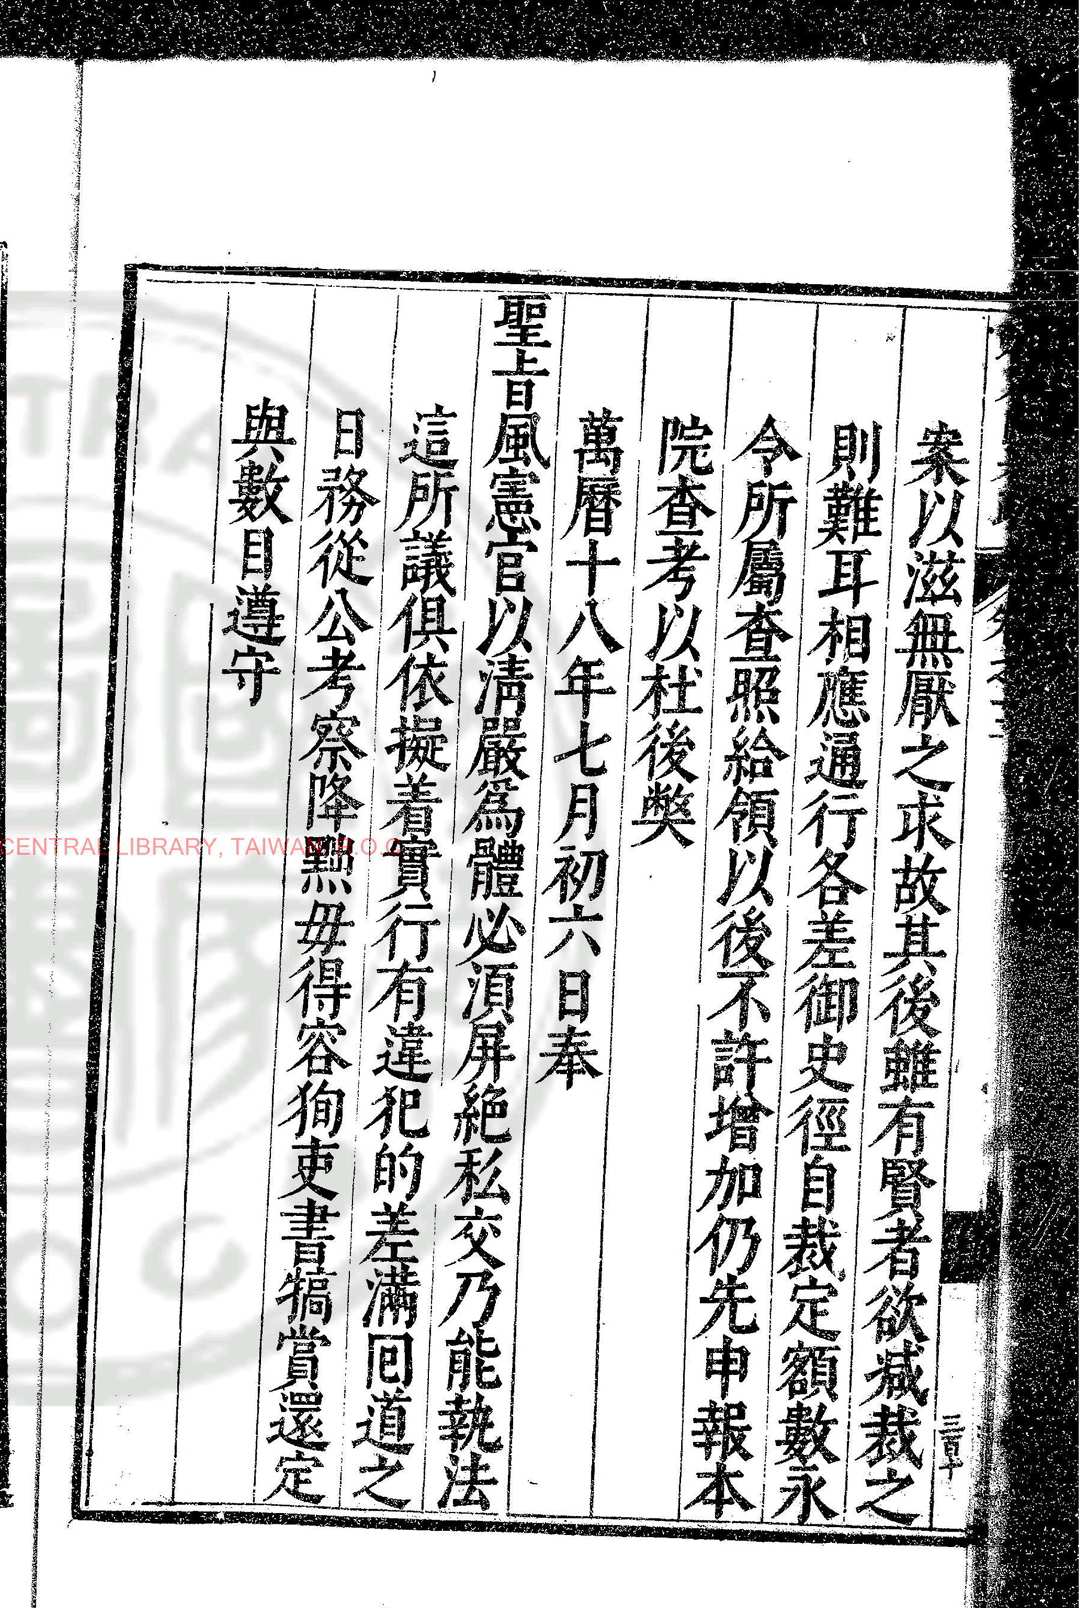 案以滋無厭之求故其後雖有賢者欲减裁之
則難耳相應通行各差御史徑自裁定額數永
令所屬查照給領以後不許增加仍先申報本
院查考以杜後弊
萬曆十八年七月初六日奉
聖上旨風憲官以清嚴爲體必須屏絶私交乃能執法
這所議俱依擬着實行有違犯的差滿囘道之
日務從公考察降黜毋得容狥吏書犒賞還定
與數目遵守
三百十
CENTRAL LIBRARY, TAIWAN R.O.C